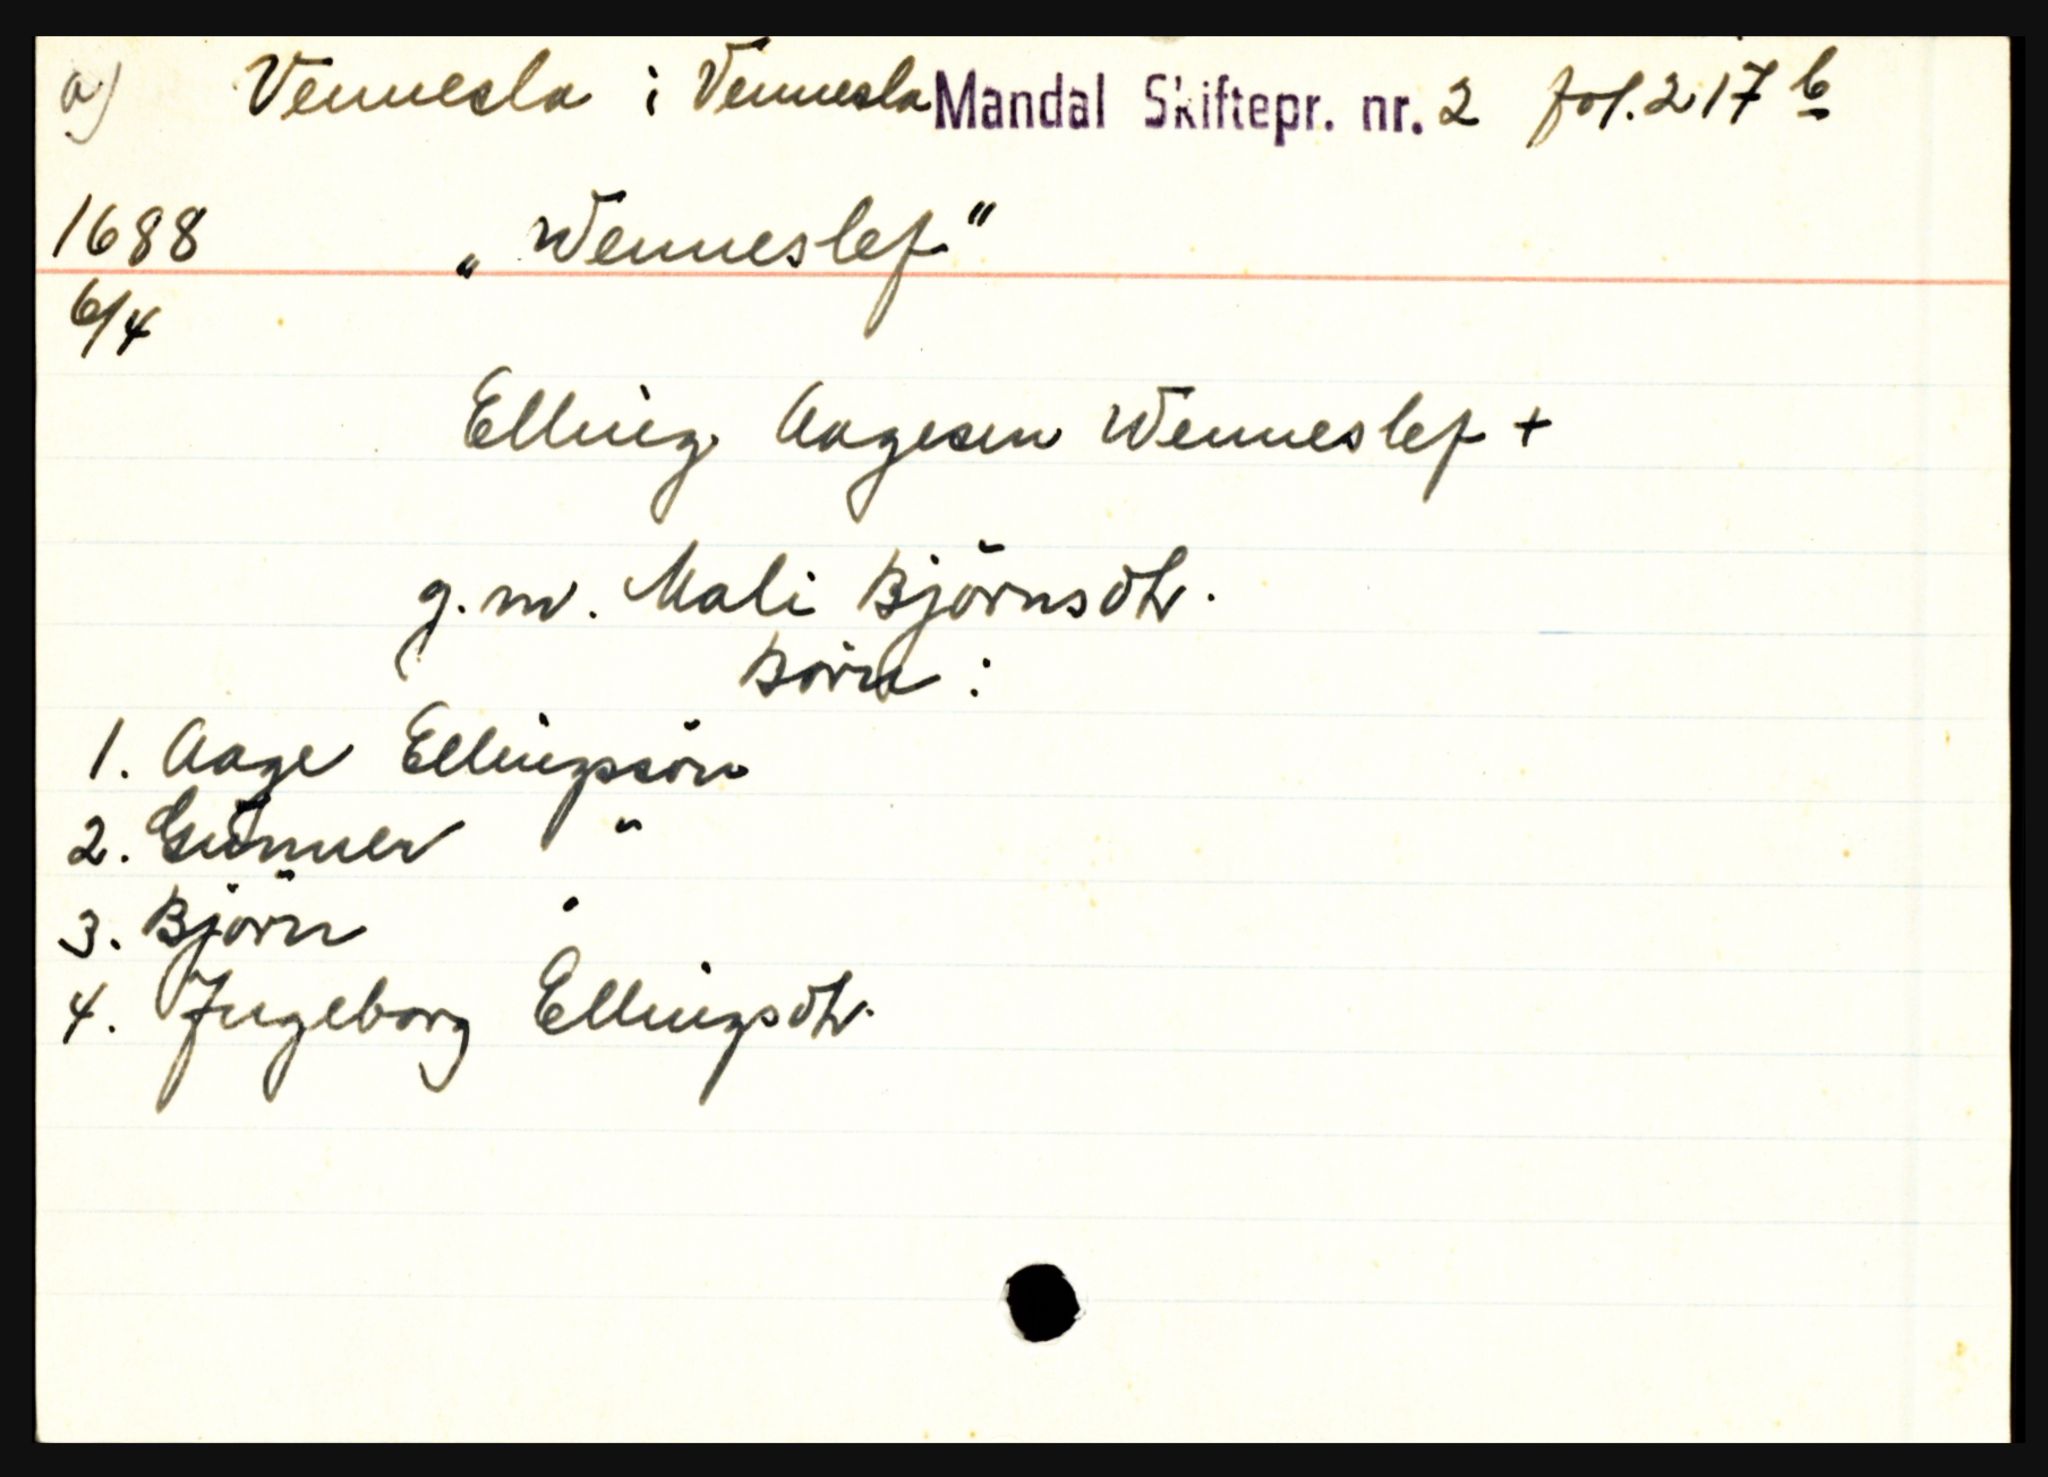 a) Vennesla i Vennesla Mandal Skiftepr. nr. 2 fol. 217 b
1688 „Wenneslef"
6/4
Elling Aagesen Wenneslef +
g. m. Mali Björnsdtr.
Börn :
1. Aage Ellingssön
2. Gunner "
3. Björn "
4. Ingeborg Ellingsdtr.